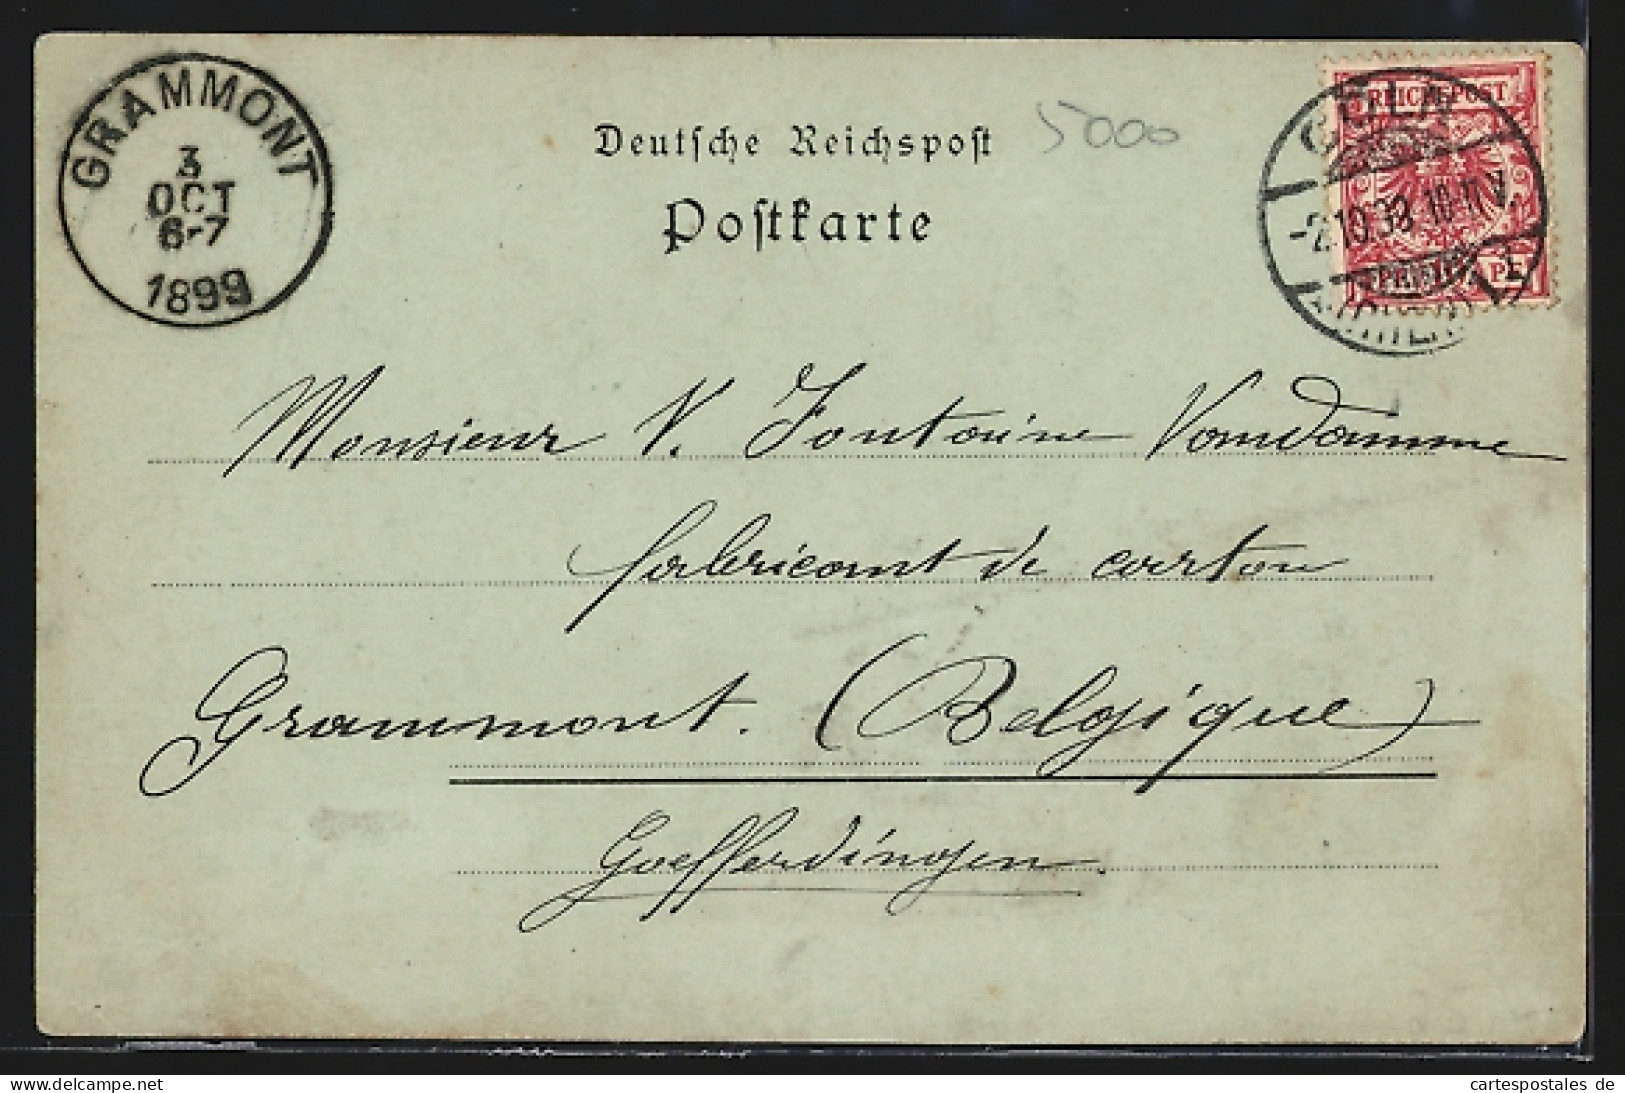 GRAMMONT
3
OCT
6-7
1899
Deutsche Reichspost
5000
Postkarte
REICHSPOST
CÖLN
-2.10.99. 10-11 V.
Monsieur V. Fontaine Vandamme
fabricant de carton
Grammont. (Belgique)
Goefferdingen.
cartespostales de